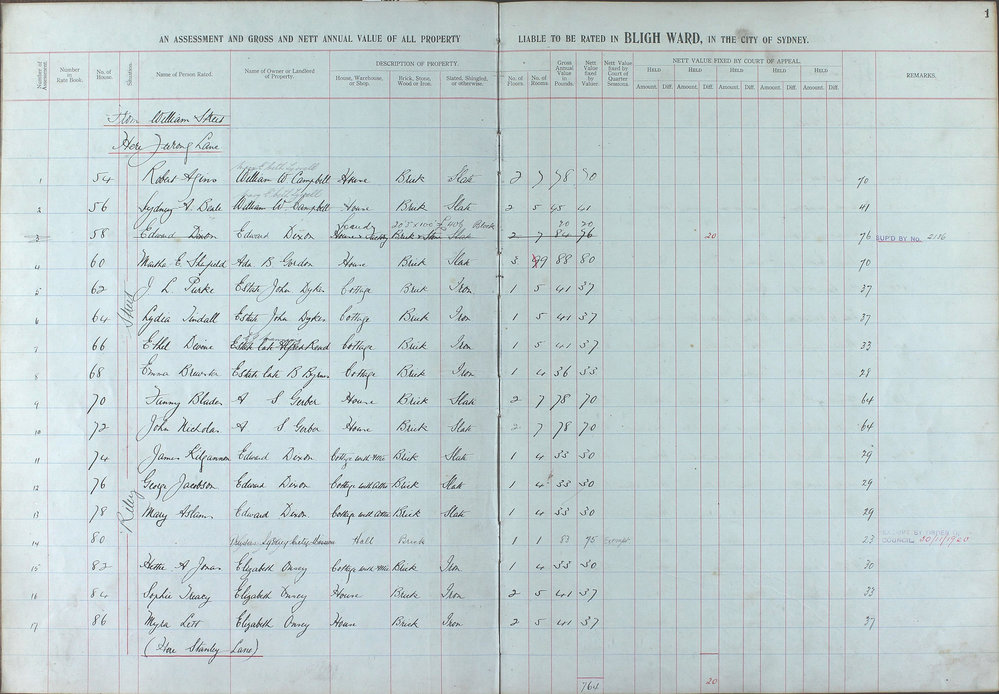 1
AN ASSESSMENT AND GROSS AND NETT ANNUAL VALUE OF ALL PROPERTY LIABLE TO BE RATED IN BLIGH WARD, IN THE CITY OF SYDNEY.
DESCRIPTION OF PROPERTY.
NETT VALUE FIXED BY COURT OF APPEAL
Number of Assessment. Number in Rate Book. No. of House. Situation. Name of Person Rated. Name of Owner or Landlord of Property. House, Warehouse, or Shop. Brick, Stone, Wood or Iron. Slated, Shingled, or otherwise. No. of Floors. No. of Rooms. Gross Annual Value in Pounds. Nett Value fixed by Valuer. Nett Value fixed by Court of Quarter Sessions. REMARKS.
HELD HELD HELD HELD HELD
Amount. Diff. Amount. Diff. Amount. Diff. Amount. Diff. Amount. Diff.
From William Street
Here Furong Lane
Riley Street
1 54 Robert William W. Campbell House Brick Slate 2 7 78 70
2 56 Sydney A. Beale William W. Campbell House Brick Slate 2 5 45 41 41
Land 20 20
3 58 Edward Dixon Edward Dixon House & Factory Brick & Stone Slate 2 7 84 76 20 76 SUP'D BY NO. 2136
4 60 Martha E. Ada B Gordon House Brick Slate 3 9 88 80 70
5 62 J. L. Parke Estate John Dykes Cottage Brick Iron 1 5 41 37 37
6 64 Lydia Tindall Estate John Dykes Cottage Brick Iron 1 5 41 37 37
7 66 Ethel Devine Estate late Alfred Read Cottage Brick Iron 1 5 41 37 33
8 68 Emma Brewster Estate late B Byrnes Cottage Brick Iron 1 4 36 33 28
9 70 Fanny Blades A S Gerber House Brick Slate 2 7 78 70 64
10 72 John Nicholas A S Gerber House Brick Slate 2 7 78 70 64
11 74 James Kilgannon Edward Dixon Cottage with Attic Brick Slate 1 4 33 30 29
12 76 George Jacobson Edward Dixon Cottage with Attic Brick Slate 1 4 33 30 29
13 78 Mary Aslam Edward Dixon Cottage with Attic Brick Slate 1 4 33 30 29
14 80 Sydney City Mission Hall Brick 1 1 83 75 Exempt 23 EXEMPT BY ORDER OF COUNCIL 30/11/1920
15 82 Hettie A Jonas Elizabeth Onsey Cottage with Attic Brick Iron 1 4 33 30 30
16 84 Sophie Treacy Elizabeth Onsey House Brick Iron 2 5 41 37 33
17 86 Myra Lett Elizabeth Onsey House Brick Iron 2 5 41 37 37
(Here Stanley Lane)
764 20